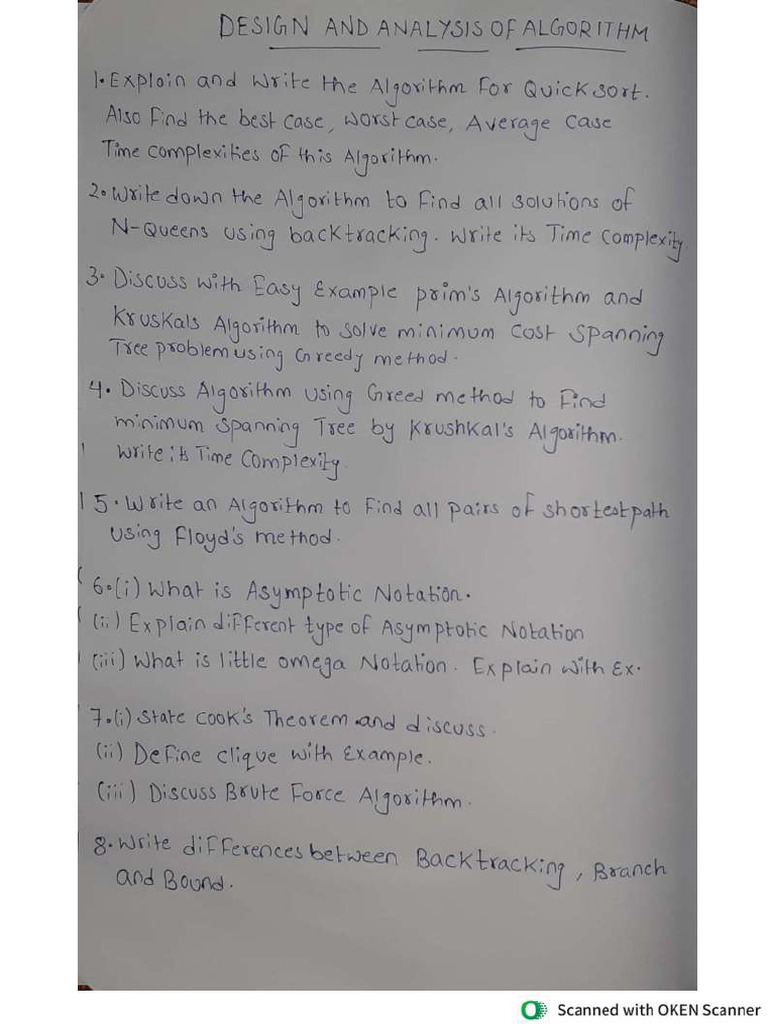 DESIGN AND ANALYSIS OF ALGORITHM
1. Explain and write the Algorithm For Quick sort.
Also Find the best case, worst case, Average case
Time complexities of this Algorithm.
2. Write down the Algorithm to Find all solutions of
N-Queens using backtracking. Write its Time Complexity
3. Discuss with Easy Example prim's Algorithm and
Kruskals Algorithm to solve minimum cost spanning
Tree problem using Greedy method.
4. Discuss Algorithm using Greed method to Find
minimum spanning Tree by Krushkal's Algorithm.
Write its Time Complexity.
5. Write an Algorithm to Find all pairs of shortest path
using Floyd's method.
6. (i) What is Asymptotic Notation.
(ii) Explain different type of Asymptotic Notation
(iii) What is little omega Notation. Explain with Ex.
7. (i) State Cook's Theorem and discuss.
(ii) Define clique with Example.
(iii) Discuss Brute Force Algorithm.
8. Write differences between Backtracking, Branch
and Bound.
Scanned with OKEN Scanner